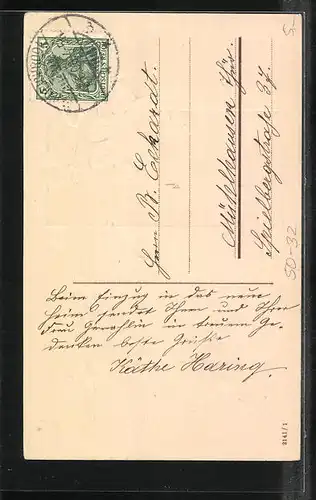 Herrn B. Eckhardt.
Mühlhausen Thür.
Spielbergstraße 37.
Beim Einzug in das neue
Heim sendet Ihnen und Ihrer
Frau Gemahlin in treuem Ge-
denken beste Grüße
Käthe Haring.
50-32
2141/1
5